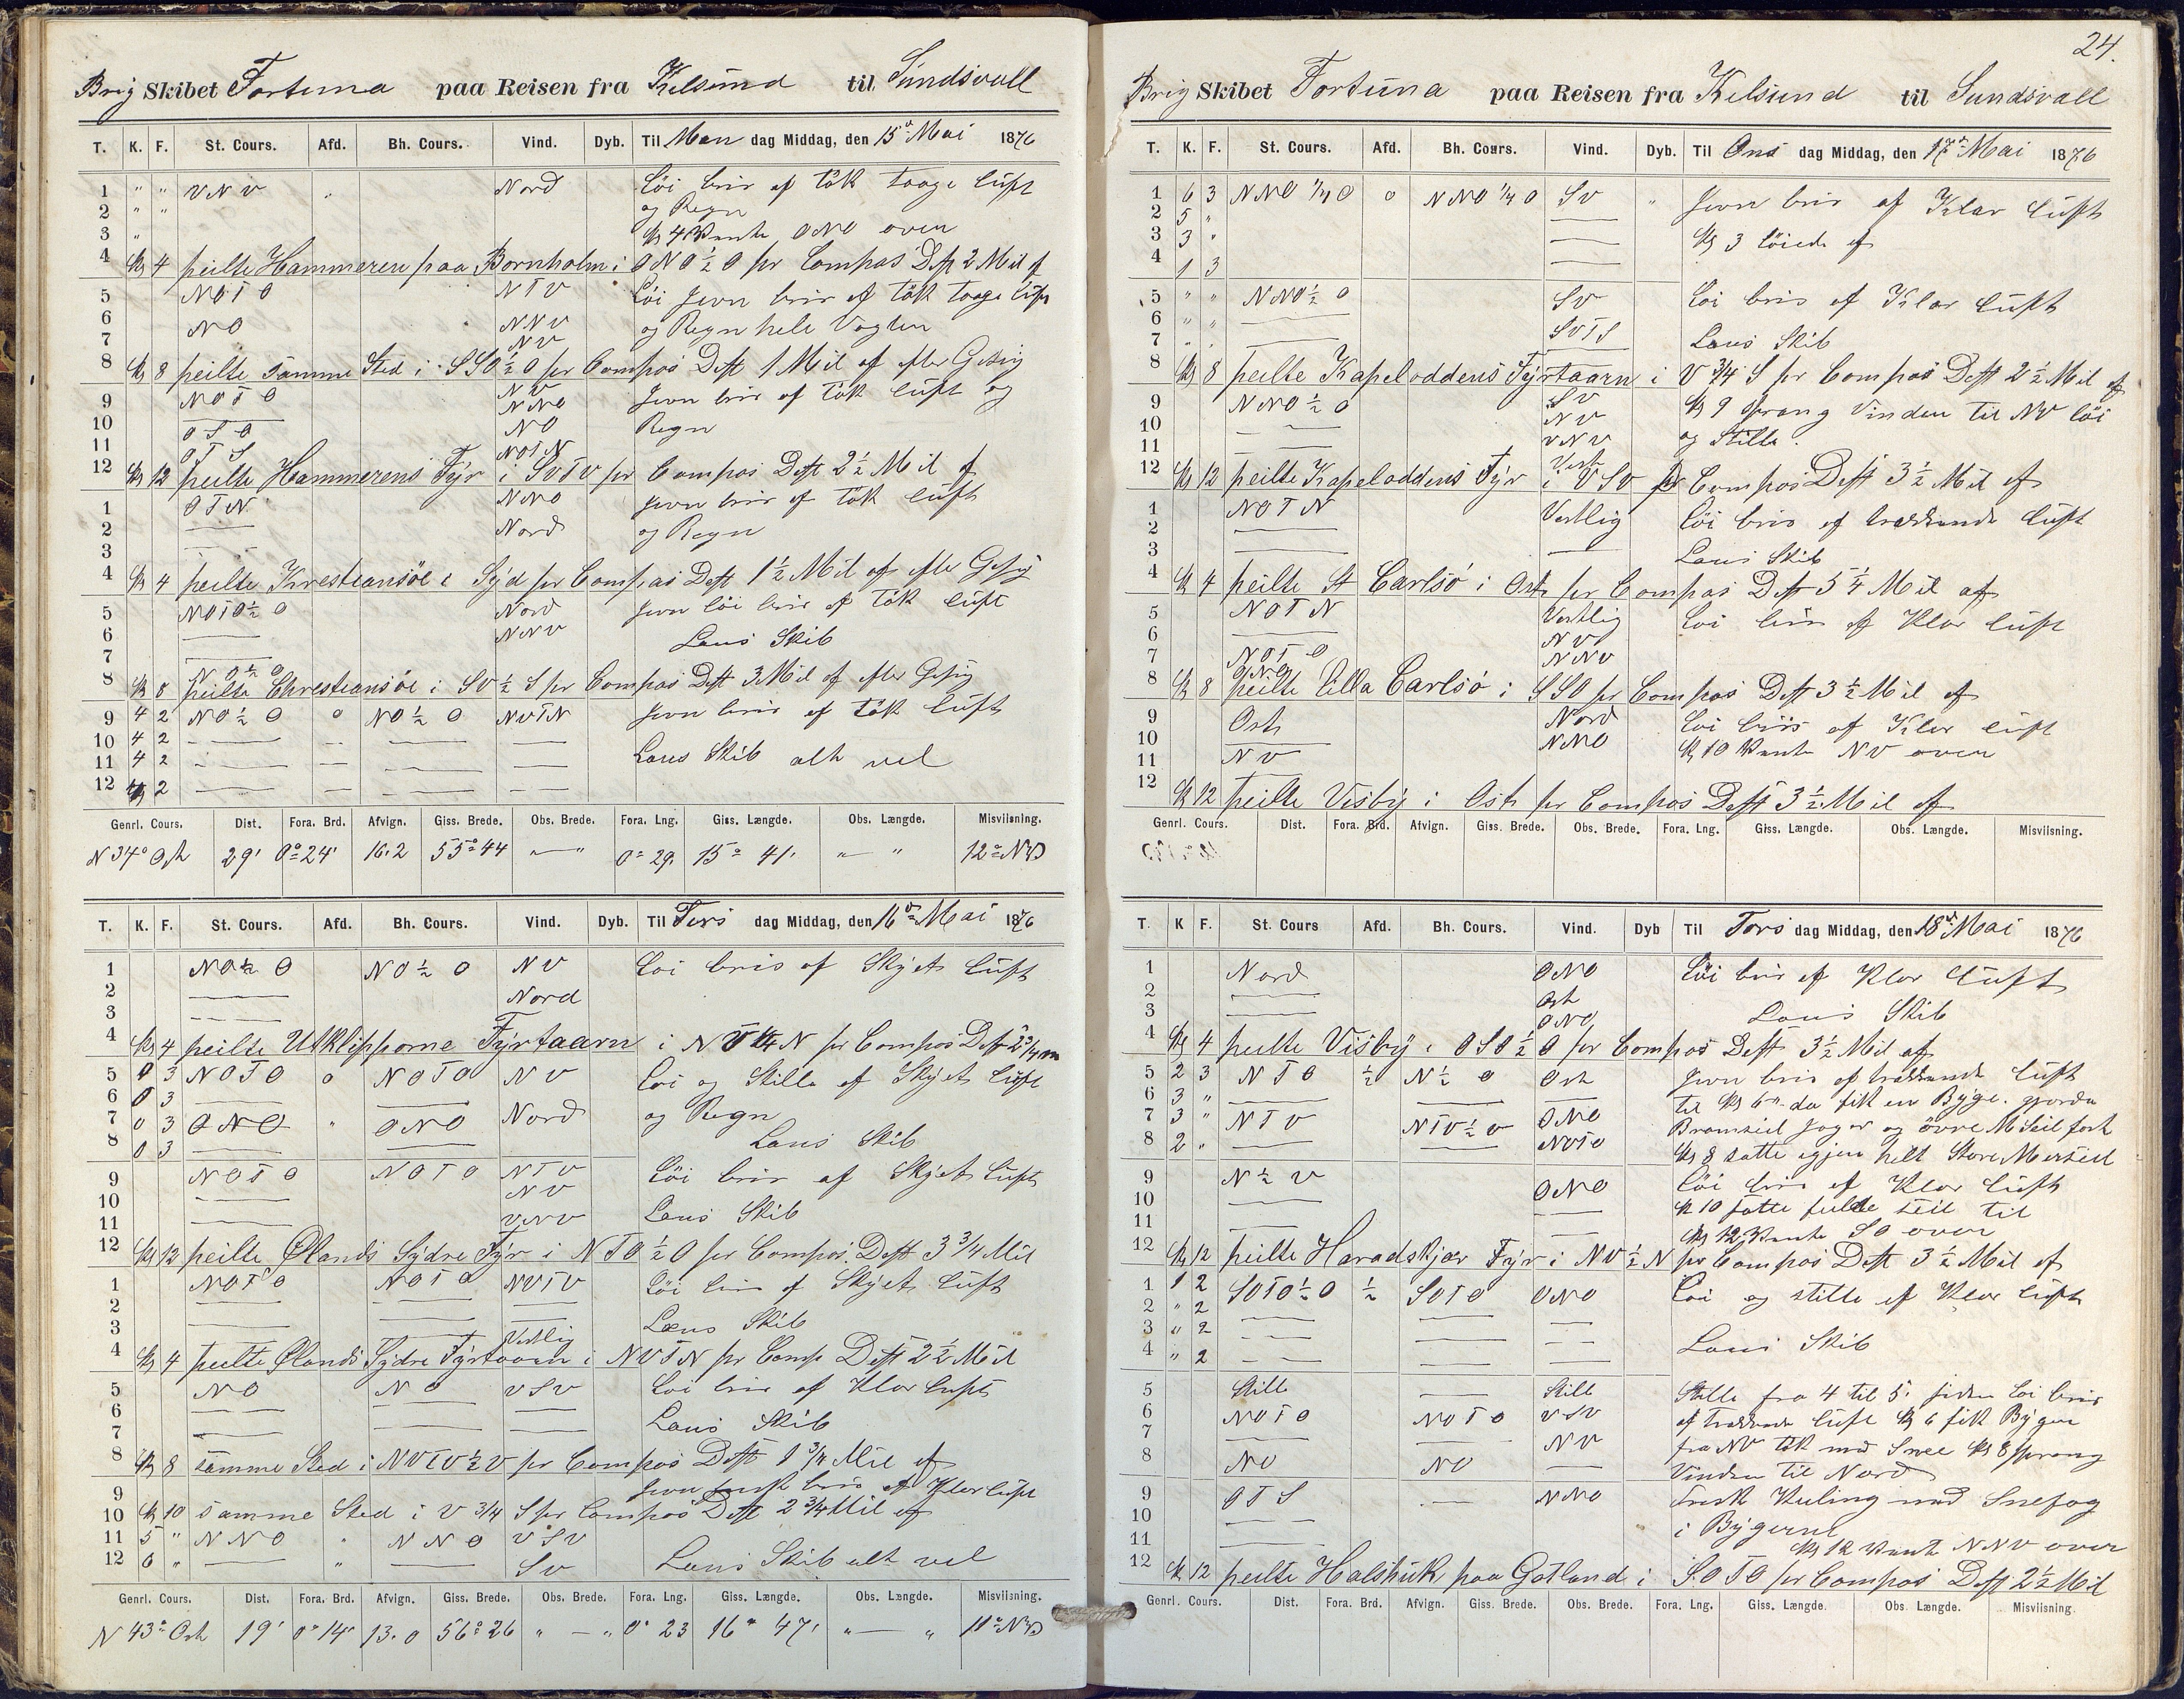 Brig Skibet Fortuna paa Reisen fra Kelsund til Sundsvall
T. K. F. St. Cours. Afd. Bh. Cours. Vind. Dyb. Til Man dag Middag, den 15de Mai 1876
1 " " VNV " Nord Löi bris af tök taage luft
2 " " og Regn
3 " Kl 4 Vente ONO over
4 Kl 4 peilte Hammeren paa Bornholm i ONO ½ O pr Compas Dist 2 Mil af
5 NOTO NTV Löi jevn bris af tök taage luft
6 NO NNV og Regn hele Vagten
7 NV
8 Kl 8 peilte Samme Sted i SSO ½ O pr Compas Dist 1 Mil af efter Gisnig
9 NOTO NV Jevn bris af tök luft og
NNO
10 OSO NO Regn
11 OTS NOTN
12 Kl 12 peilte Hammerens Fÿr i SVTV pr Compas Dist 2½ Mil af
1 OTN NNO jevn bris af tök luft
2 — Nord og Regn
3 —
4 Kl 4 peilte Krestiansöe i Sÿd pr Compas Dist 1½ Mil af efter Gisnig
5 NOTO ½ O Nord jevn löi bris af tök luft
6 — NNV Lens Skib
7 —
NO ½ O
8 Kl 8 peilte Chrestiansöe i SV ½ S pr Compas Dist 3 Mil af efter Gisnig
9 4 2 NO ½ O o NO ½ O NVTN jevn bris af tök luft
10 4 2 — — — —
11 4 2 — — — — Lens Skib alt vel
12 4 2 — — — —
Genrl. Cours. Dist. Fora. Brd. Afvign. Giss. Brede. Obs. Brede. Fora. Lng. Giss. Længde. Obs. Længde. Misviisning.
N 34° Ost 29' 0° 24' 16.2 55° 44 " — " 0° 29' 15° 41' " — " 12° NV
T. K. F. St. Cours. Afd. Bh. Cours. Vind. Dyb. Til Tirs dag Middag, den 16de Mai 1876
1 NO ½ O NO ½ O NV Löi bris af Skÿet luft
2 — Nord
3 —
4 Kl 4 peilte Utklipporne Fÿrtaarn i NV ¼ N pr Compas Dist 2¾ m
5 0 3 NOTO o NOTO NV Löi og Stille af Skÿet luft
6 0 3 — —
7 0 3 ONO " ONO Nord og Regn
8 0 3 — — Lens Skib
9 NOTO NOTO NTV Löi bris af Skÿet luft
10 — NV
11 — VNV Lens Skib
12 Kl 12 peilte Ølands Sÿdre Fÿr i NTO ½ O pr Compas Dist 3¾ Mil
1 NOTO NOTO NVTV Löi bris af Skÿet luft
2 — — —
3 — — Vestlig Lens Skib
4 Kl 4 peilte Ølands Sÿdre Fÿrtaarn i NVTN pr Comp Dist 2½ Mil
5 NO NO VSV Löi bris af Klar luft
6 — — —
7 — — — Lens Skib
8 Kl 8 samme Sted i NVTV ½ V pr Compas Dist 1¾ Mil af
9 jevn frisk bris af Klar luft
10 Kl 10 samme Sted i V ¾ S pr Compas Dist 2¾ Mil af
11 5 " NNO " NNO VSV
12 6 " — " — SV Lens Skib alt vel
Genrl. Cours. Dist. Fora. Brd. Afvign. Giss. Brede. Obs. Brede. Fora. Lng. Giss. Længde. Obs. Længde. Misviisning.
N 43° Ost 19' 0° 14' 13.0 56° 26 " — " 0° 23 16° 47' " — " 11° NV
24.
Brig Skibet Fortuna paa Reisen fra Kelsund til Sundsvall
T. K. F. St. Cours. Afd. Bh. Cours. Vind. Dyb. Til Ons dag Middag, den 17de Mai 1876
1 6 3 NNO ¼ O o NNO ¼ O SV " Jevn bris af Klar luft
2 5 "
3 3 " — Kl 3 löiede af
4 1 3 —
5 " " NNO ½ O SV Löi bris af Klar luft
6 " " — SVTS
7 " " — — Lens Skib
8 Kl 8 peilte Kapeloddens Fÿrtaarn i V ¾ S pr Compas Dist 2½ Mil af
9 NNO ½ O SV Kl 9 sprang Vinden til NV löi
10 — NV
11 — VNV og Stille.
Vest
12 Kl 12 peilte Kapeloddens Fÿr i VSV pr Compas Dist 3½ Mil af
1 NOTN Vestlig Löi bris af trækkende luft
2 —
3 — — Lens Skib
4 Kl 4 peilte St Carlsö i Ost pr Compas Dist 5¼ Mil af
5 NOTN Vestlig Löi bris af Klar luft
6 — NV
7 NOTO NNV
ONO
8 Kl 8 peilte Lilla Carlsö i SSO pr Compas Dist 3½ Mil af
9 Ost Nord Löi bris af Klar luft
10 — NNO Kl 10 Vente NV over
11 NV
12 Kl 12 peilte Visbÿ i Ost pr Compas Dist 3½ Mil af
Genrl. Cours. Dist. Fora. Brd. Afvign. Giss. Brede. Obs. Brede. Fora. Lng. Giss. Længde. Obs. Længde. Misviisning.
T. K F. St. Cours Afd. Bh. Cours. Vind. Dyb Til Tors dag Middag, den 18de Mai 1876
1 Nord ONO Löi bris af Klar luft
2 — Ost
3 — ONO Lens Skib
4 Kl 4 peilte Visbÿ i OSO ½ O pr Compas Dist 3½ Mil af
5 2 3 NTO ½ N ½ O Ost jevn bris af trækkende luft
6 3 " — — — til Kl 6 da fik en Bÿge. gjorde
7 3 " NTV NTV ½ V ONO Bramseil Jager og övre M Seil fast
8 2 " — — NOTO Kl 8 satte igjen helt Store Mersseil
9 N ½ V ONO Löi bris af Klar luft
10 — — Kl 10 satte fulde seil til
11 — — Kl 12 Vente SO over
12 Kl 12 peilte Haradskjær Fÿr i NV ½ N pr Compas Dist 3½ Mil af
1 1 2 SOTO ½ O ½ SOTO ONO Löi og stille af Klar luft
2 " 2 — — —
3 " 2 — — —
4 " 2 — — — Lens Skib
5 Stille — Stille Stille fra 4 til 5. siden Löi bris
6 NOTO NOTO VSV af trækkende luft Kl 6 fik Bÿger
7 — — NV fra NV tök med Snee Kl 8 sprang
8 NO NO — Vinden til Nord
9 OTS — NNO Frisk Kuling med Snefog
10 — i Bÿgerne
11 — Kl 12 Vente NNV over
12 Kl 12 peilte Halshuk paa Gotland i SOTO pr Compas Dist 2½ Mil
Genrl. Cours. Dist. Fora. Brd. Afvign. Giss. Brede. Obs. Brede. Fora. Lng. Giss. Længde. Obs. Længde. Misviisning